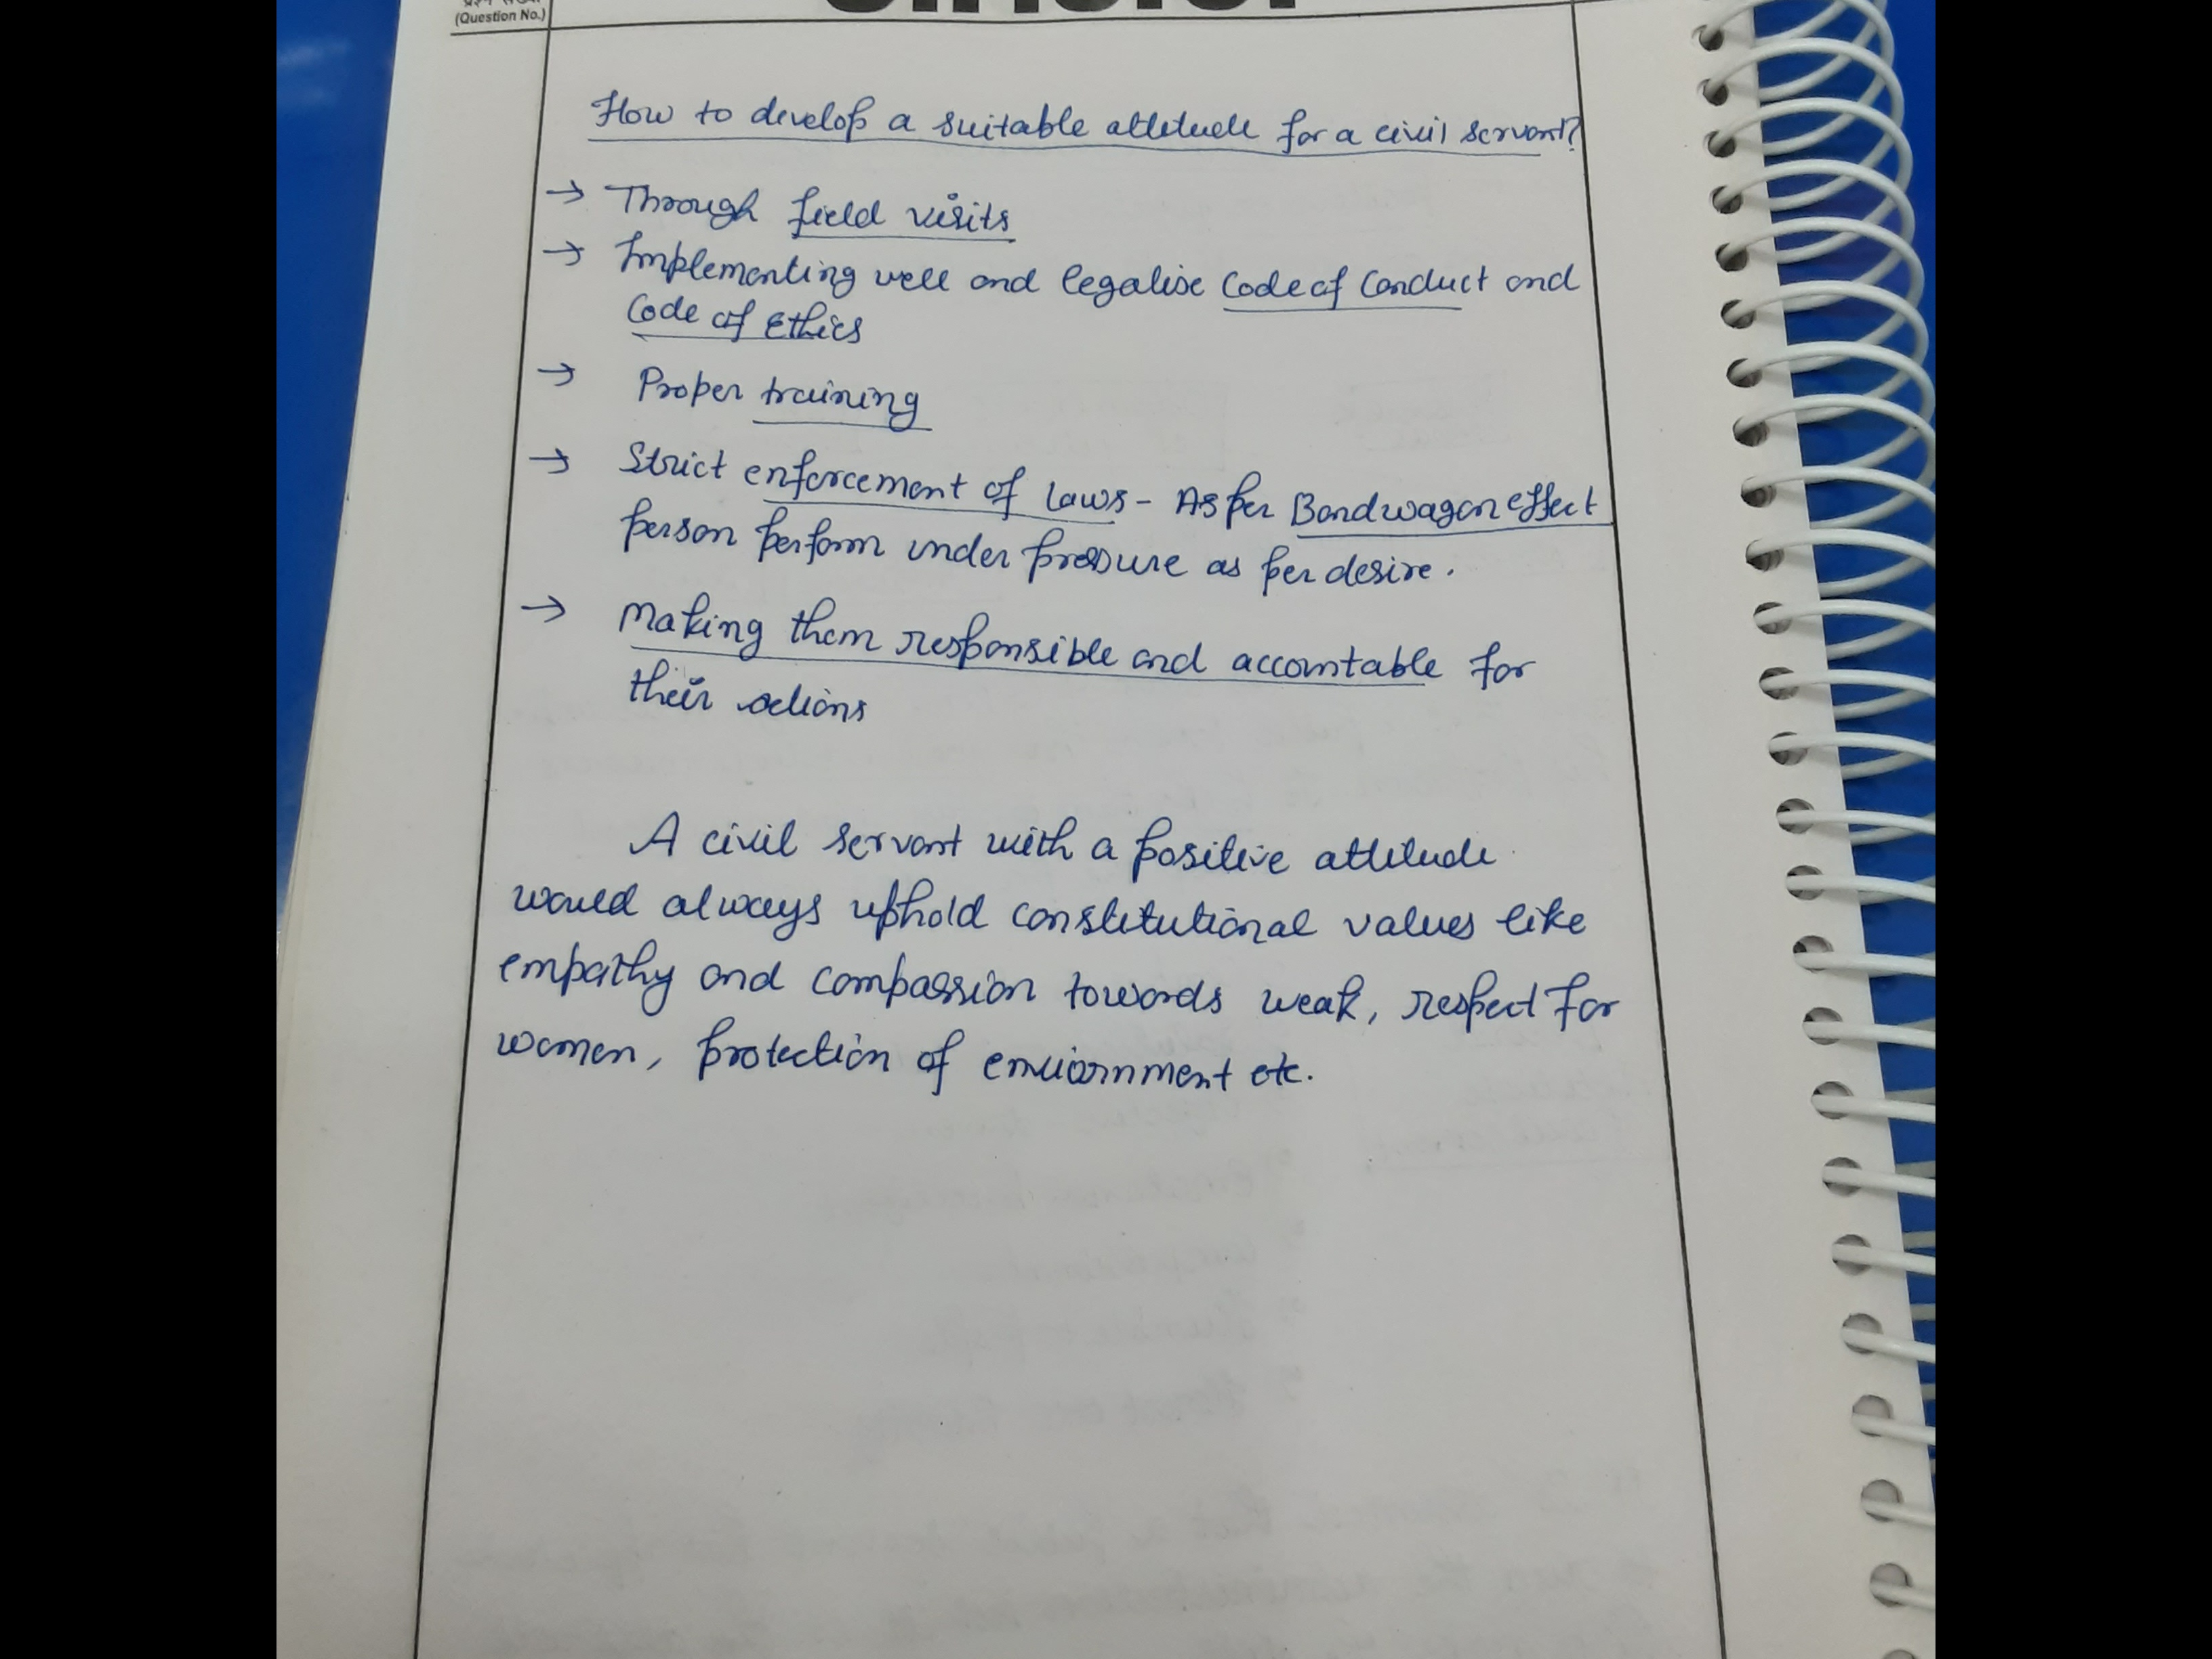 (Question No.)
How to develop a suitable attitude for a civil servant?
→ Through field visits
→ Implementing well and legalise Code of Conduct and
Code of Ethics
→ Proper training
→ Strict enforcement of laws - As per Bandwagon effect
person perform under pressure as per desire.
→ Making them responsible and accountable for
their actions
A civil servant with a positive attitude
would always uphold constitutional values like
empathy and compassion towards weak, respect for
women, protection of enviornment etc.